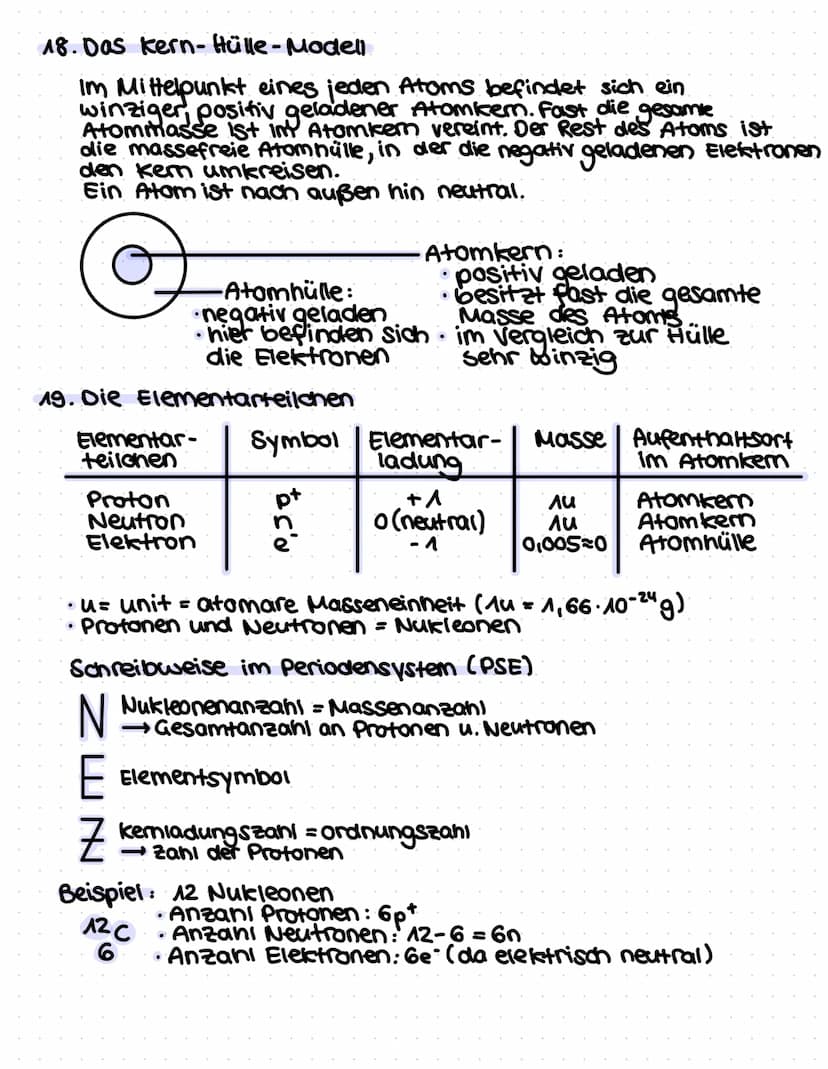 18. Das Kern-Hülle-Modell
Im Mittelpunkt eines jeden Atoms befindet sich ein
winziger, positiv geladener Atomkern. Fast die gesamte
Atommasse ist im Atomkern vereint. Der Rest des Atoms ist
die massefreie Atomhülle, in der die negativ geladenen Elektronen
den Kern umkreisen.
Ein Atom ist nach außen hin neutral.
Atomkern:
• positiv geladen
• besitzt fast die gesamte
Masse des Atoms
• im Vergleich zur Hülle
sehr winzig
Atomhülle:
• negativ geladen
• hier befinden sich
die Elektronen
19. Die Elementarteilchen
Elementar- | Symbol | Elementar- | Masse | Aufenthaltsort
teilchen | ladung | im Atomkern
Proton | p⁺ | +1 | 1u | Atomkern
Neutron | n | 0 (neutral) | 1u | Atomkern
Elektron | e⁻ | -1 | 0,005≈0 | Atomhülle
• u = unit = atomare Masseneinheit (1u = 1,66·10⁻²⁴g)
• Protonen und Neutronen = Nukleonen
Schreibweise im Periodensystem (PSE)
N Nukleonenanzahl = Massenanzahl
→ Gesamtanzahl an Protonen u. Neutronen
E Elementsymbol
Z Kernladungszahl = Ordnungszahl
→ Zahl der Protonen
Beispiel: 12 Nukleonen
• Anzahl Protonen: 6p⁺
12 C • Anzahl Neutronen: 12-6 = 6n
6 • Anzahl Elektronen: 6e⁻ (da elektrisch neutral)